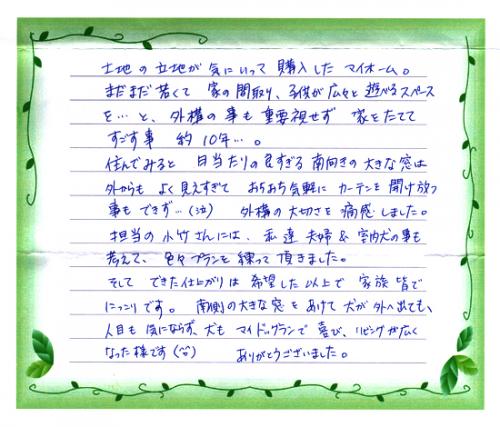 土地の立地が気にいって購入したマイホーム。
まだまだ若くて 家の間取り、子供が広々と遊べるスペース
を…と、外構の事も重要視せず 家をたてて
すごす事 約10年…。
住んでみると 日当たりの良すぎる南向きの大きな窓は
外からも よく見えすぎて おちおち気軽に カーテンを開け放つ
事もできず…(泣) 外構の大切さを痛感しました。
担当の小竹さんには、私達夫婦&室内犬の事も
考えて、色々プランを練って頂きました。
そして できた仕上がりは 希望した以上で 家族皆で
にっこりです。 南側の大きな窓をあけて 犬が外へ出ても、
人目も気にならず、犬も マイドッグランで喜び、リビングが広く
なった様です(^^) ありがとうございました。